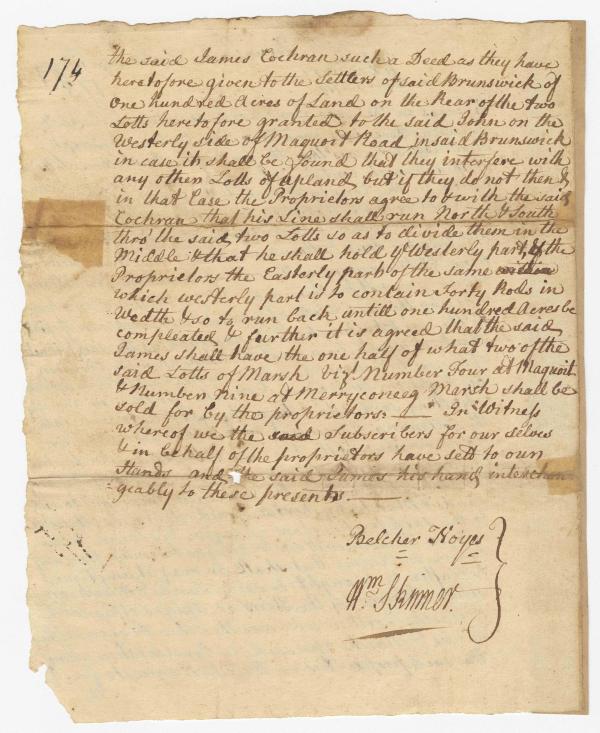 174
the said James Cochran such a Deed as they have
heretofore given to the Settlers of said Brunswick of
One hundred Acres of Land on the Rear of the two
Lotts heretofore granted to the said John on the
Westerly Side of Maquoit Road in said Brunswick
in case it shall be found that they interfere with
any other Lotts of upland, but if they do not then &
in that Case the Proprietors agree to & with the said
Cochran that his Line shall run North & South
thro' the said two Lotts so as to divide them in the
Middle & that he shall hold ye Westerly part, & the
Proprietors the Easterly part of the same
which westerly part is to contain Forty Rods in
Wedth & so to run back untill one hundred Acres be
compleated & further it is agreed that the said
James shall have the one half of what two of the
said Lotts of Marsh viz. Number Four at Maquoit
& Number Nine at Merryconeeg Marsh shall be
sold for by the proprietors. — In Witness
whereof we the said Subscribers for our selves
& in behalf of the proprietors have sett to our
Hands and the said James his hand interchan
geably to these presents. —
Belcher Noyes
Wm Skinner.